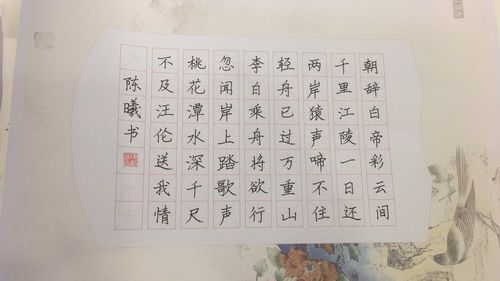 朝辞白帝彩云间
千里江陵一日还
两岸猿声啼不住
轻舟已过万重山
李白乘舟将欲行
忽闻岸上踏歌声
桃花潭水深千尺
不及汪伦送我情
陈曦书